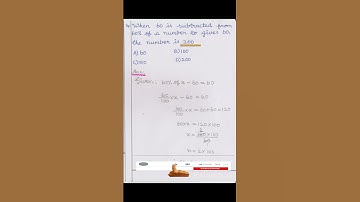 When 60 is subtracted from
60% of a number to gives 60,
the number is 200
A) 60 B) 100
C) 150 D) 200
60% of x - 60 = 60
60/100 × x - 60 = 60
60/100 × x = 60+60 = 120
60x = 120 × 100
x = 2 × 100